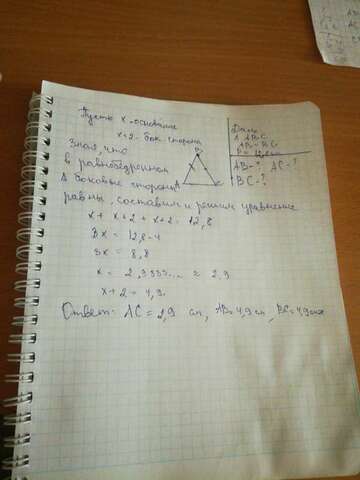 Пусть x - основание
x+2 - бок. сторона
Зная, что
в равнобедренном
Δ боковые стороны
равны, составим и решим уравнение
x + x+2 + x+2 = 12,8
3x = 12,8-4
3x = 8,8
x = 2,9333... ≈ 2,9
x+2 = 4,9.
Ответ: AC = 2,9 см, AB = 4,9 см, BC = 4,9 см
Дано
Δ ABC
AB = BC
AB-? AC-?
BC-?
A